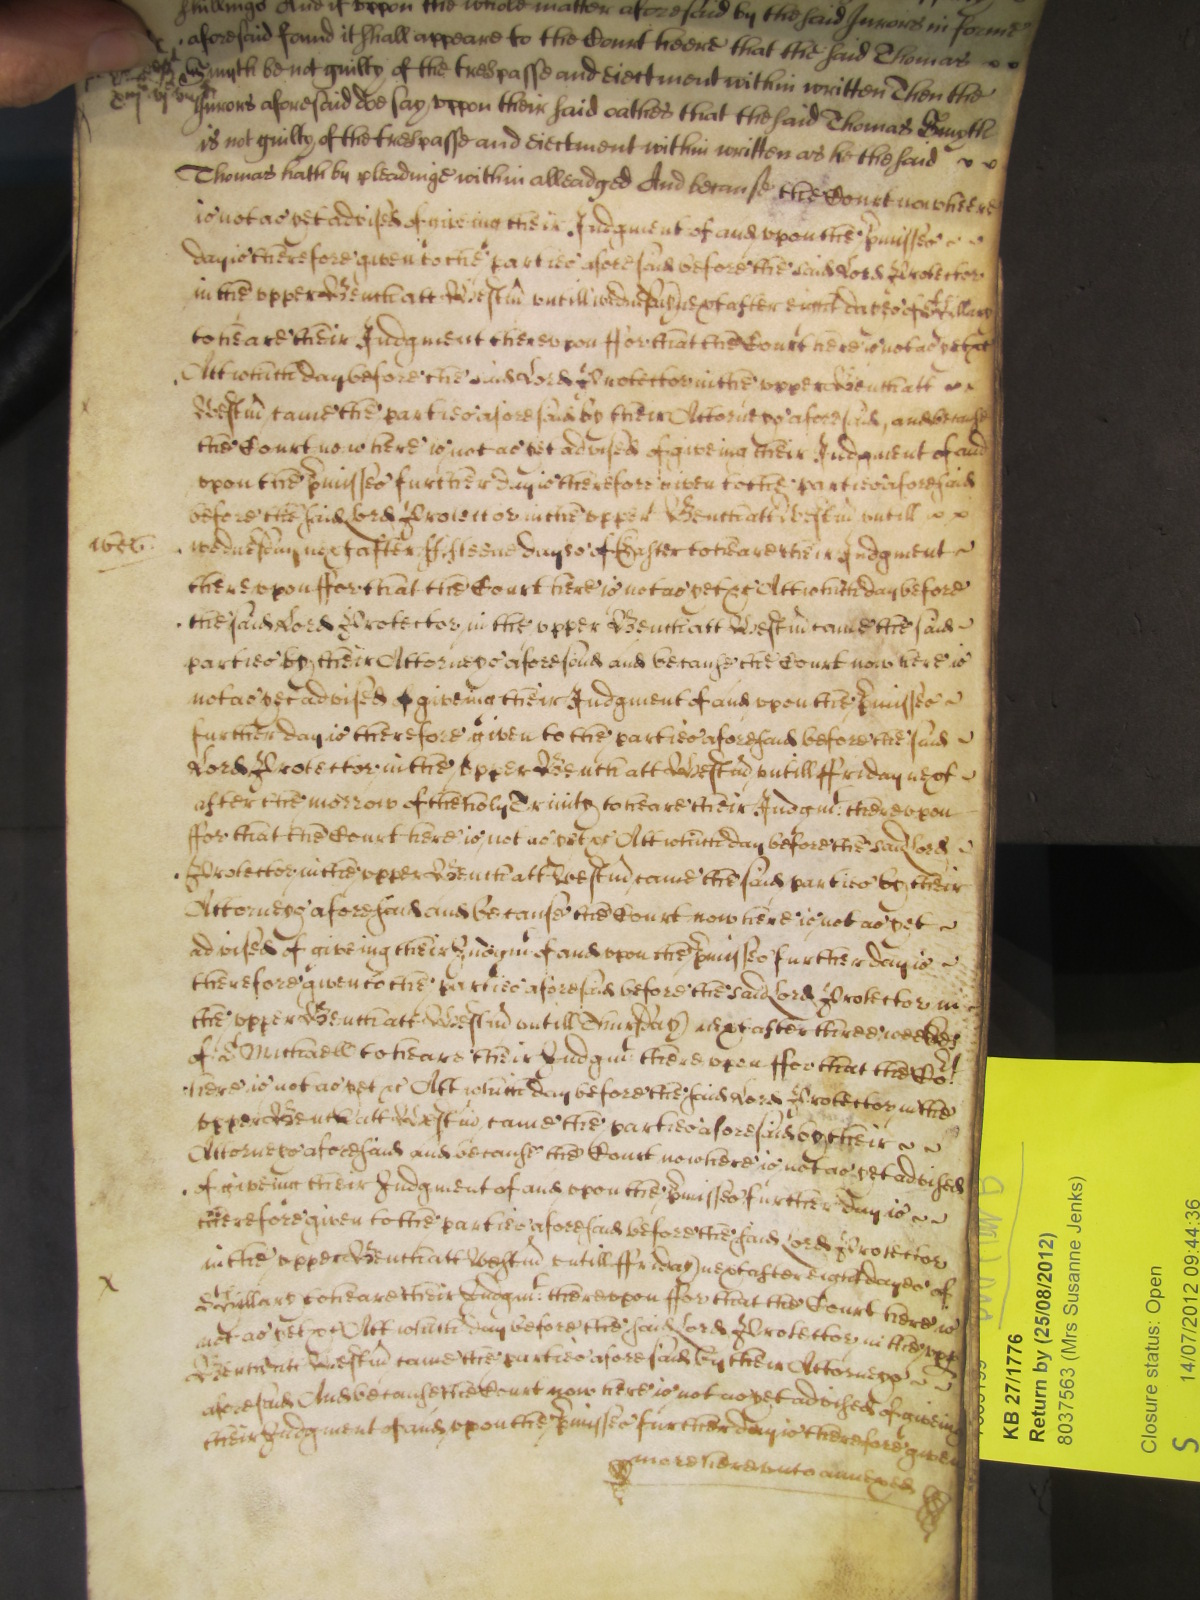 shillings And if uppon the whole matter aforesaid by the said Jurors in forme
aforesaid found it shall appeare to the Court heere that the said Thomas
Smyth be not guilty of the trespasse and eiectment within written Then the
Jurors aforesaid doe say uppon their said oathes that the said Thomas Smyth
is not guilty of the trespasse and eiectment within written as he the said
Thomas hath by pleadinge within alleadged And because the Court now heere
is not as yet advised of giveing their Judgment of and upon the p'misses
day is therefore given to the parties aforesaid before the said Lord Protector
in the upper Bench att Westm' untill wednesday next after eight dayes of St Hillary
to heare their Judgment thereupon ffor that the Court here is not as yet &c
Att which day before the said Lord Protector in the upper Bench att
Westm' came the parties aforesaid by their Attorneys aforesaid, and because
the Court now here is not as yet advised of giveing their Judgment of and
upon the p'misses further day is therefore given to the parties aforesaid
before the said Lord Protector in the upper Bench att Westm' untill
wednesday next after ffifteene dayes of Easter to heare their Judgment
thereupon ffor that the Court here is not as yet &c Att which day before
the said Lord Protector in the upper Bench att Westm' came the said
parties by their Attorneys aforesaid and because the Court now here is
not as yet advised of giveing their Judgment of and upon the p'misses
further day is therefore given to the parties aforesaid before the said
Lord Protector in the upper Bench att Westm' untill ffriday next
after the morrow of the holy Trinity to heare their Judgm't thereupon
ffor that the Court here is not as yet &c Att which day before the said Lord
Protector in the upper Bench att Westm' came the said parties by their
Attorneys aforesaid and because the Court now here is not as yet
advised of giveing their Judgm't of and upon the p'misses further day is
therefore given to the parties aforesaid before the said Lord Protector in
the upper Bench att Westm' untill Thursday next after three weekes
of St Michaell to heare their Judgm't thereupon ffor that the Co't
here is not as yet &c Att which day before the said Lord Protector in the
upper Bench att Westm' came the parties aforesaid by their
Attorneys aforesaid and because the Court now here is not as yet advised
of giveing their Judgment of and upon the p'misses further day is
therefore given to the parties aforesaid before the said Lord Protector
in the upper Bench att Westm' untill ffriday next after eight dayes of
St Hillary to heare their Judgm't thereupon ffor that the Court here is
not as yet &c Att which day before the said Lord Protector in the upper
Bench att Westm' came the parties aforesaid by their Attorneys
aforesaid And because the Court now here is not as yet advised of giveing
their Judgment of and upon the p'misses further day is therefore given
more hereunto annexed
KB 27/1776
Return by (25/08/2012)
8037563 (Mrs Susanne Jenks)
Closure status: Open
S 14/07/2012 09:44:36